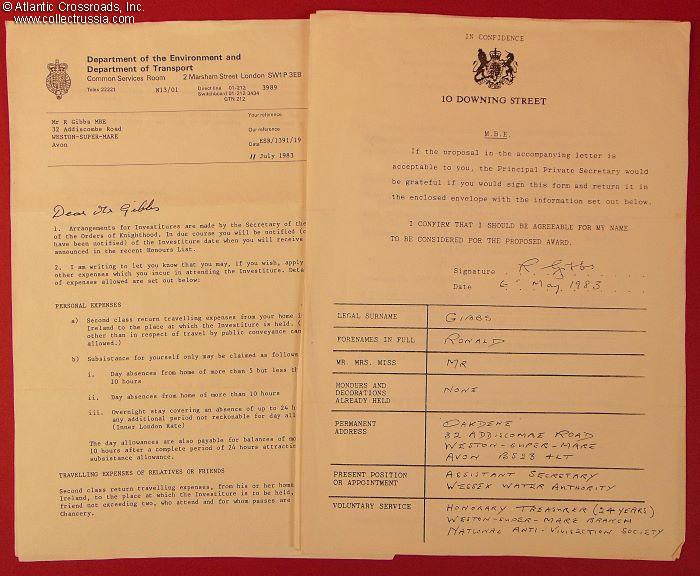 © Atlantic Crossroads, Inc.
www.collectrussia.com
Department of the Environment and
Department of Transport
Common Services Room 2 Marsham Street London SW1P 3EB
Telex 22221 N13/01 Direct line 01-212 3989
Switchboard 01-212 3434
GTN 212
Your reference
Mr R Gibbs MBE
32 Addiscombe Road
WESTON-SUPER-MARE
Avon
Our reference
ESB/1391/19
Date
11 July 1983
Dear Mr Gibbs
1. Arrangements for Investitures are made by the Secretary of the
of the Orders of Knighthood. In due course you will be notified (o
have been notified) of the Investiture date when you will receive
announced in the recent Honours List.
2. I am writing to let you know that you may, if you wish, apply
other expenses which you incur in attending the Investiture. Deta
of expenses allowed are set out below:
PERSONAL EXPENSES
a) Second class return travelling expenses from your home i
Ireland to the place at which the Investiture is held. (
other than in respect of travel by public conveyance can
allowed.)
b) Subsistance for yourself only may be claimed as follows
i. Day absences from home of more than 5 but less th
10 hours
ii. Day absences from home of more than 10 hours
iii. Overnight stay covering an absence of up to 24 h
any additional period not reckonable for day all
(Inner London Rate)
The day allowances are also payable for balances of mo
10 hours after a complete period of 24 hours attractin
subsistance allowance.
TRAVELLING EXPENSES OF RELATIVES OR FRIENDS
Second class return travelling expenses, from his or her home
Ireland, to the place at which the Investiture is to be held,
friend not exceeding two, who attend and for whom passes are
Chancery.
IN CONFIDENCE
10 DOWNING STREET
M.B.E.
If the proposal in the accompanying letter is
acceptable to you, the Principal Private Secretary would
be grateful if you would sign this form and return it in
the enclosed envelope with the information set out below.
I CONFIRM THAT I SHOULD BE AGREEABLE FOR MY NAME
TO BE CONSIDERED FOR THE PROPOSED AWARD.
Signature R. Gibbs
Date 6 May, 1983
LEGAL SURNAME GIBBS
FORENAMES IN FULL RONALD
MR. MRS. MISS MR
HONOURS AND
DECORATIONS
ALREADY HELD NONE
PERMANENT
ADDRESS
OAKDENE
32 ADDISCOMBE ROAD
WESTON-SUPER-MARE
AVON BS23 4LT
PRESENT POSITION
OR APPOINTMENT
ASSISTANT SECRETARY
WESSEX WATER AUTHORITY
VOLUNTARY SERVICE
HONORARY TREASURER (24 YEARS)
WESTON-SUPER-MARE BRANCH
NATIONAL ANTI-VIVISECTION SOCIETY